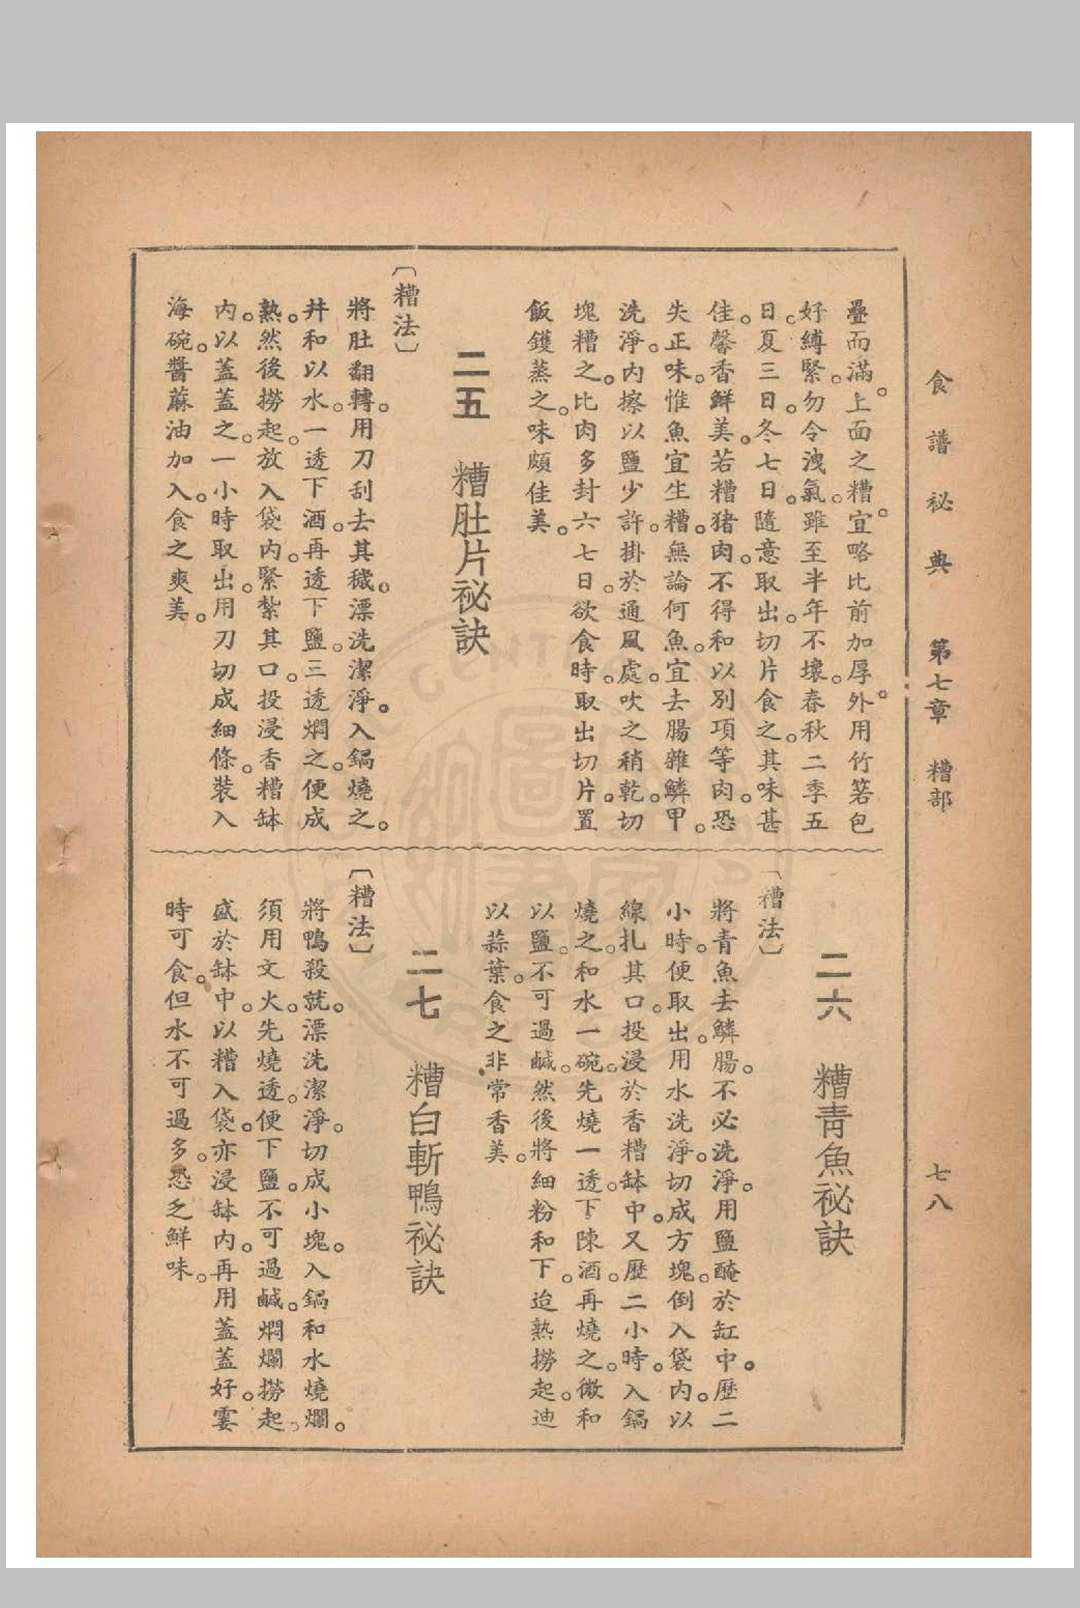 食譜祕典　第七章　糟部　七八
疊而滿。上面之糟。宜略比前加厚。外用竹箬包
好縛緊。勿令洩氣。雖至半年不壞。春秋二季五
日。夏三日。冬七日。隨意取出。切片食之。其味甚
佳。馨香鮮美。若糟猪肉。不得和以別項等肉。恐
失正味。惟魚宜生糟。無論何魚。宜去腸雜鱗甲。
洗淨。內擦以鹽少許。掛於通風處。吹之稍乾。切
塊糟之。比肉多封六七日。欲食時。取出切片。置
飯鑊蒸之。味頗佳美。
二五　糟肚片祕訣
〔糟法〕
將肚翻轉。用刀刮去其穢。漂洗潔淨。入鍋燒之。
幷和以水。一透下酒。再透下鹽。三透燜之。便成
熟。然後撈起。放入袋內。緊紮其口。投浸香糟缽
內。以蓋蓋之。一小時取出。用刀切成細條。裝入
海碗。醬蔴油加入。食之爽美。
二六　糟靑魚祕訣
〔糟法〕
將青魚去鱗腸。不必洗淨。用鹽醃於缸中。歷二
小時。便取出。用水洗淨。切成方塊。倒入袋內。以
線扎其口。投浸於香糟缽中。又歷二小時。入鍋
燒之。和水一碗。先燒一透。下陳酒。再燒之。微和
以鹽。不可過鹹。然後將細粉和下。迨熟撈起。迪
以蒜葉。食之非常香美。
二七　糟白斬鴨祕訣
〔糟法〕
將鴨殺就。漂洗潔淨。切成小塊。入鍋和水燒爛。
須用文火。先燒透。便下鹽。不可過鹹。燜爛撈起。
盛於缽中。以糟入袋。亦浸缽內。再用蓋蓋好。霎
時可食。但水不可過多。恐乏鮮味。